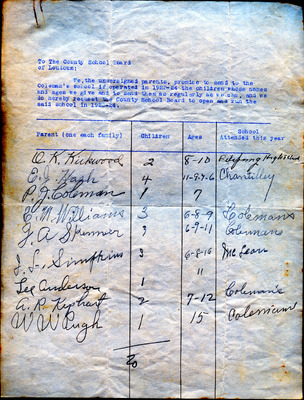 To The County School Board
of Loudoun:
We, the unsersigned parents, promise to send to the
Coleman's school if operated in 1923-24 the children whose names
and ages we give and to send them as regularly as we can, and we
do hereby request the County School Board to open and run the
said school in 1923-24.
Parent (one each family) Children Ages School Attended this year
O. K. Kirkwood 2 8-10
E. J. Nash 4 11-9-7-6 Chantilley
P. J. Coleman 1 7
E. M. Williams 3 6-8-9 Colemans
J. A Skinner 3 6-9-11 Colemans
J. L. Simpkins 3 6-8-16 Mc Lean
Lee Anderson 1 11
A. R. Kephart 2 7-12 Coleman's
W W Pugh 1 15 Colemans
20